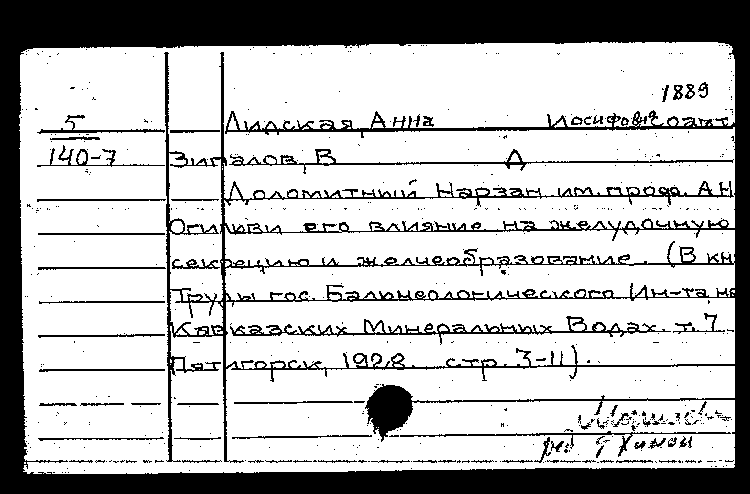 1889
5 Лидская, Анна Иосифовна соавт.
140-7 Зипалов, В А
Доломитный Нарзан им. проф. АН
Огильви его влияние на желудочную
секрецию и желчеобразование. (В кн
Труды гос. Бальнеологического Ин-та на
Кавказских Минеральных Водах. т. 7
Пятигорск, 1928. стр. 3-11).
ред